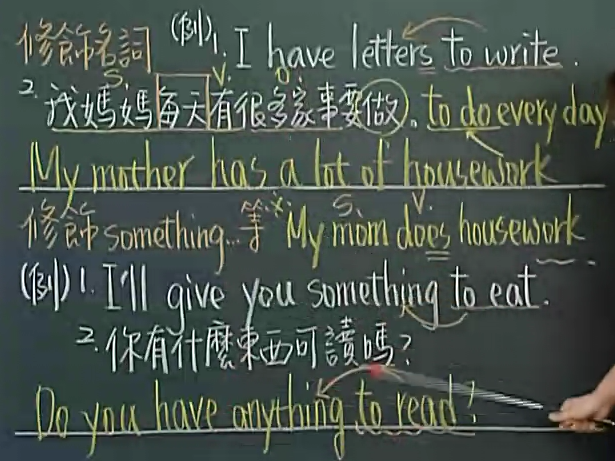 修飾名詞 (例) 1. I have letters to write.
S. V. O.
2. 我媽媽每天有很多家事要做。 to do every day
My mother has a lot of housework
S. V.
修飾something...等 ※ My mom does housework
(例) 1. I'll give you something to eat.
2. 你有什麼東西可讀嗎?
Do you have anything to read?